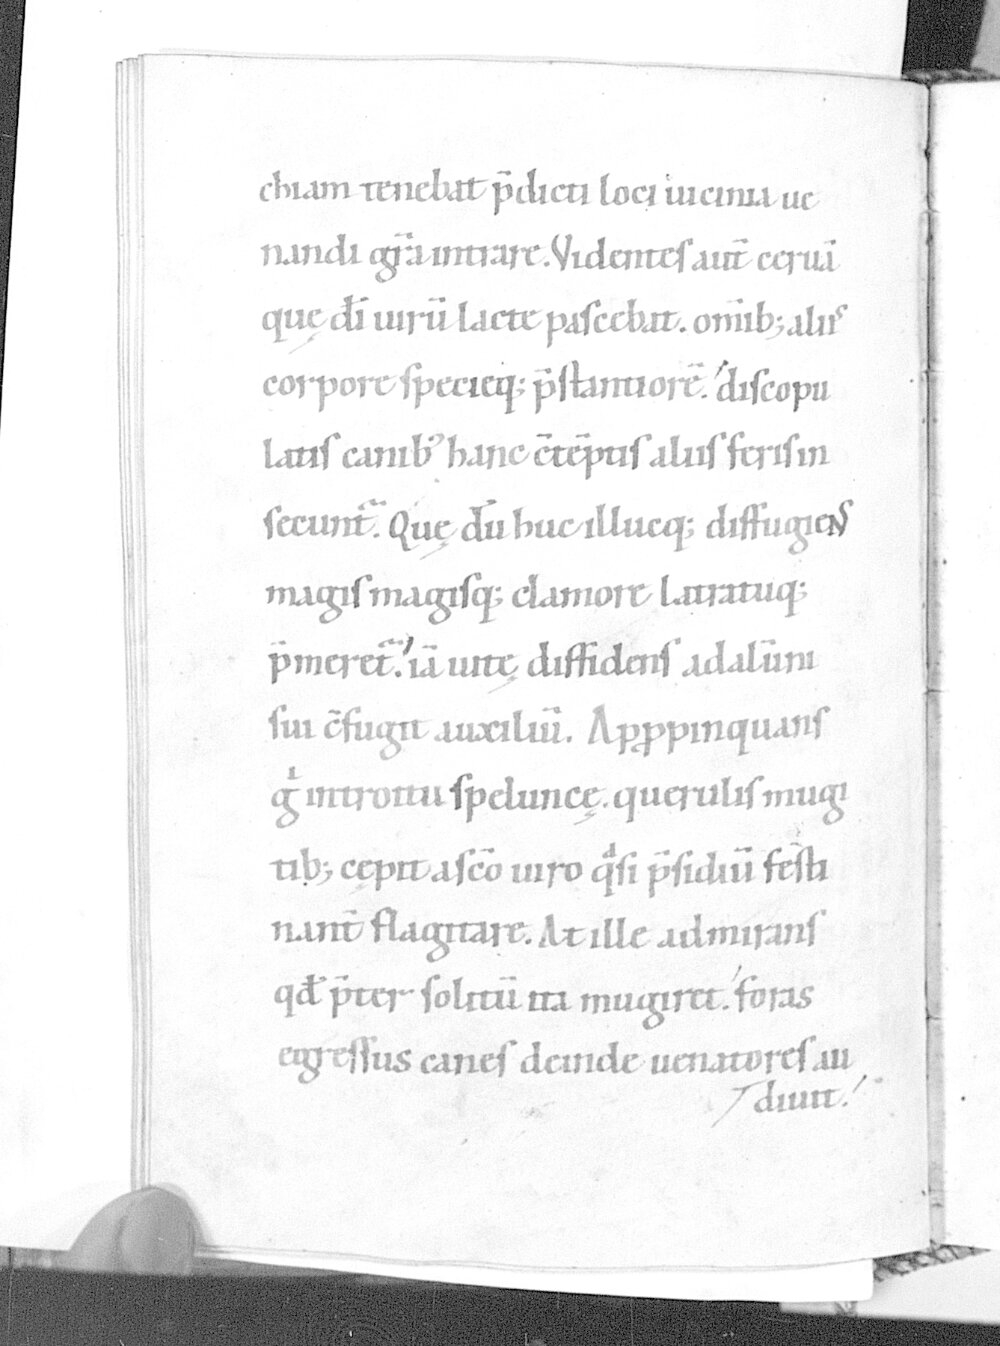 chiam tenebat p̄dicti loci uicinia ue
nandi gr̄a intrare. Videntes aut̄ ceruā
quę dī uirū lacte pascebat. om̄ib; aliis
corpore specieq; p̄stantiorē. discopu
latis canib⁹ hanc c̄tēptis aliis feris in
secunt᷒. Quę dū huc illucq; diffugiens
magis magisq; clamore latratuq;
p̄meret᷒. iā uitę diffidens ad alūni
sui c̄fugit auxiliū. Apꝓpinquans
gͥ introitu speluncę. querulis mugi
tib; cępit a sc̄o uiro qͣsi p̄sidiū festi
nant̄ flagitare. At ille admirans
qđ p̄ter solitū ita mugiret. foras
egressus canes deinde uenatores au
diuit.